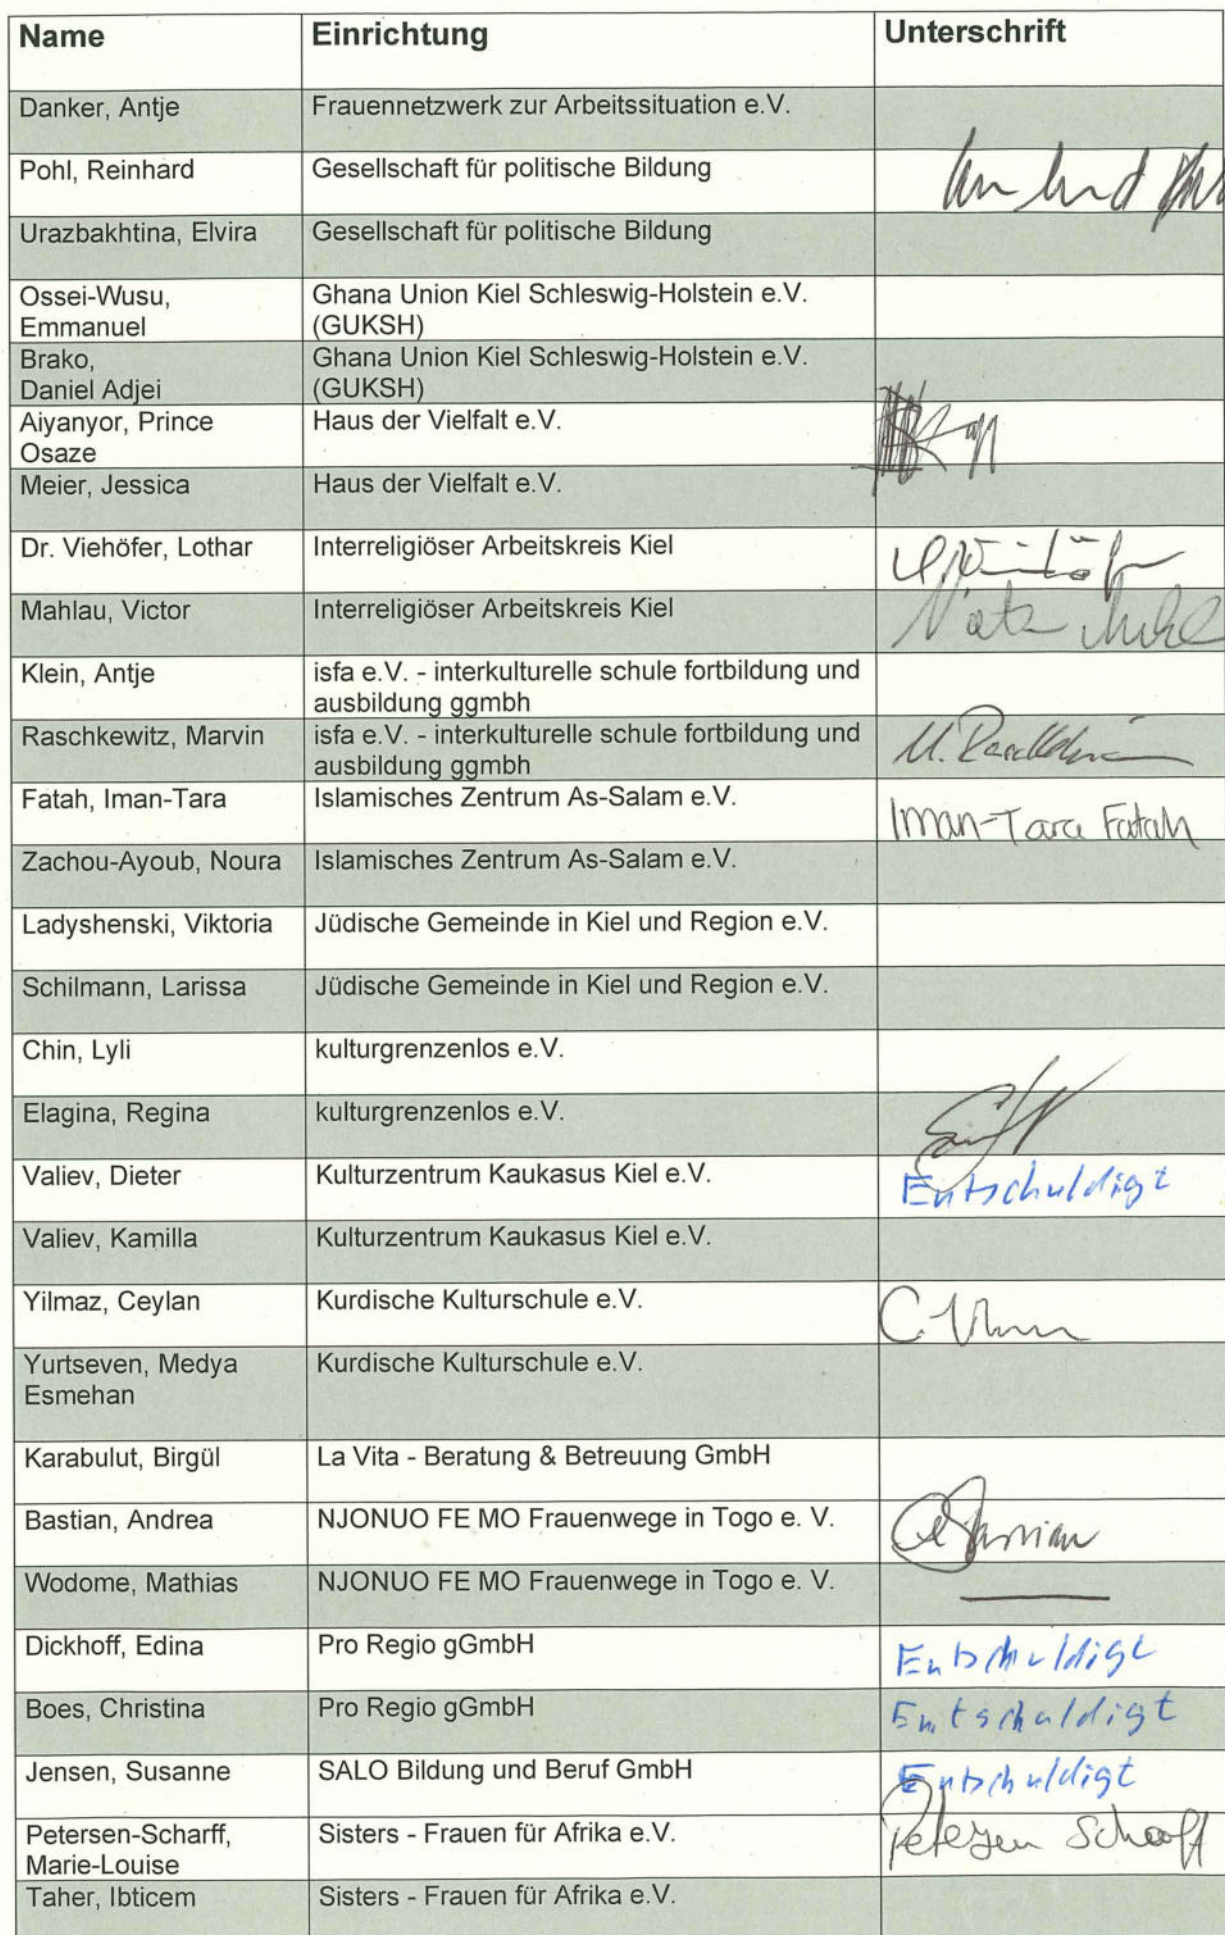 Name Einrichtung Unterschrift
Danker, Antje Frauennetzwerk zur Arbeitssituation e.V.
Pohl, Reinhard Gesellschaft für politische Bildung
Urazbakhtina, Elvira Gesellschaft für politische Bildung
Ossei-Wusu, Ghana Union Kiel Schleswig-Holstein e.V.
Emmanuel (GUKSH)
Brako, Ghana Union Kiel Schleswig-Holstein e.V.
Daniel Adjei (GUKSH)
Aiyanyor, Prince Haus der Vielfalt e.V.
Osaze
Meier, Jessica Haus der Vielfalt e.V.
Dr. Viehöfer, Lothar Interreligiöser Arbeitskreis Kiel
Mahlau, Victor Interreligiöser Arbeitskreis Kiel
Klein, Antje isfa e.V. - interkulturelle schule fortbildung und
ausbildung ggmbh
Raschkewitz, Marvin isfa e.V. - interkulturelle schule fortbildung und
ausbildung ggmbh
Fatah, Iman-Tara Islamisches Zentrum As-Salam e.V. Iman-Tara Fatah
Zachou-Ayoub, Noura Islamisches Zentrum As-Salam e.V.
Ladyshenski, Viktoria Jüdische Gemeinde in Kiel und Region e.V.
Schilmann, Larissa Jüdische Gemeinde in Kiel und Region e.V.
Chin, Lyli kulturgrenzenlos e.V.
Elagina, Regina kulturgrenzenlos e.V.
Valiev, Dieter Kulturzentrum Kaukasus Kiel e.V. Entschuldigt
Valiev, Kamilla Kulturzentrum Kaukasus Kiel e.V.
Yilmaz, Ceylan Kurdische Kulturschule e.V.
Yurtseven, Medya Kurdische Kulturschule e.V.
Esmehan
Karabulut, Birgül La Vita - Beratung & Betreuung GmbH
Bastian, Andrea NJONUO FE MO Frauenwege in Togo e. V.
Wodome, Mathias NJONUO FE MO Frauenwege in Togo e. V.
Dickhoff, Edina Pro Regio gGmbH Entschuldigt
Boes, Christina Pro Regio gGmbH Entschuldigt
Jensen, Susanne SALO Bildung und Beruf GmbH Entschuldigt
Petersen-Scharff, Sisters - Frauen für Afrika e.V. Petersen Scharff
Marie-Louise
Taher, Ibticem Sisters - Frauen für Afrika e.V.